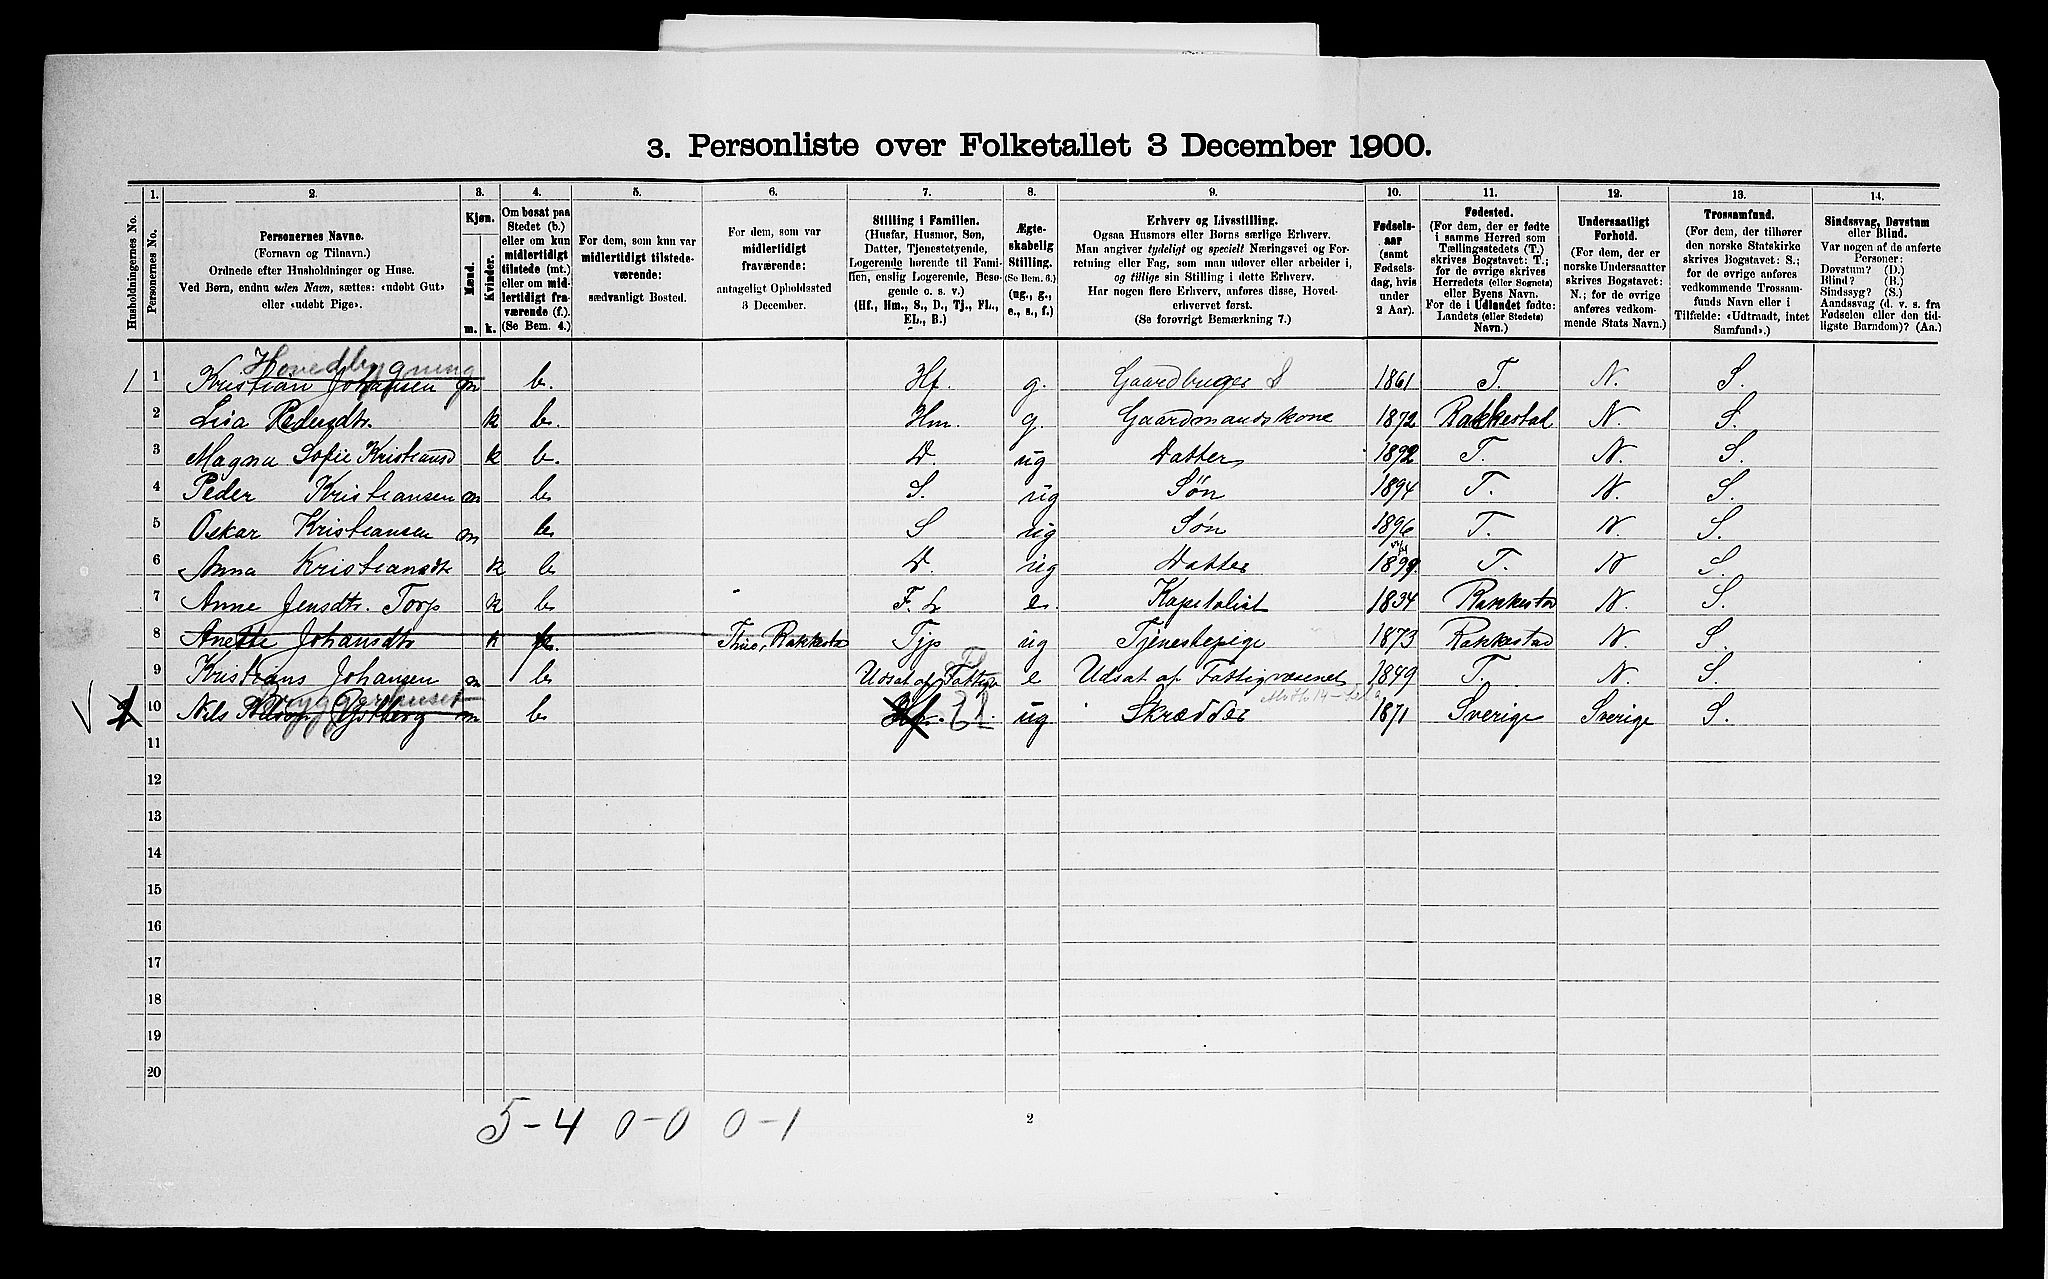 3. Personliste over Folketallet 3 December 1900.
1. 2. 3. 4. 5. 6. 7. 8. 9. 10. 11. 12. 13. 14.
Husholdningernes No.
Personernes No.
Personernes Navne.
(Fornavn og Tilnavn.)
Ordnede efter Husholdninger og Huse.
Ved Børn, endnu uden Navn, sættes: «udøbt Gut»
eller «udøbt Pige».
Kjøn.
Mænd.
Kvinder.
m. k.
Om bosat paa
Stedet (b.)
eller om kun
midlertidigt
tilstede (mt.)
eller om mid-
lertidigt fra-
værende (f.).
(Se Bem. 4.)
For dem, som kun var
midlertidigt tilstede-
værende:
sædvanligt Bosted.
For dem, som var
midlertidigt
fraværende:
antageligt Opholdssted
3 December.
Stilling i Familien.
(Husfar, Husmor, Søn,
Datter, Tjenestetyende,
Logerende hørende til Fami-
lien, enslig Logerende, Besø-
gende o. s. v.)
(Hf., Hm., S., D., Tj., FL.,
EL., B.)
Ægte-
skabelig
Stilling.
(Se Bem. 6.)
(ug., g.,
e., s., f.)
Erhverv og Livsstilling.
Ogsaa Husmors eller Børns særlige Erhverv.
Man angiver tydeligt og specielt Næringsvei og For-
retning eller Fag, som man udøver eller arbeider i,
og tillige sin Stilling i dette Erhverv.
Har nogen flere Erhverv, anføres disse, Hoved-
erhvervet først.
(Se forøvrigt Bemærkning 7.)
Fødsels-
aar
(samt
Fødsels-
dag, hvis
under
2 Aar).
Fødested.
(For dem, der er fødte
i samme Herred som
Tællingsstedets (T.)
skrives Bogstavet: T.;
for de øvrige skrives
Herredets (eller Sognets)
eller Byens Navn.
For de i Udlandet fødte:
Landets (eller Stedets)
Navn.)
Undersaatligt
Forhold.
(For dem, der er
norske Undersaatter
skrives Bogstavet:
N.; for de øvrige
anføres vedkom-
mende Stats Navn.)
Trossamfund.
(For dem, der tilhører
den norske Statskirke
skrives Bogstavet: S.;
for de øvrige anføres
vedkommende Trossam-
funds Navn eller i
Tilfælde: «Udtraadt, intet
Samfund».)
Sindssvag, Døvstum
eller Blind.
Var nogen af de anførte
Personer:
Døvstum? (D.)
Blind? (B.)
Sindssyg? (S.)
Aandssvag (d. v. s. fra
Fødselen eller den tid-
ligste Barndom)? (Aa.)
Hovedbygning
1 1 Kristian Johansen m b. Hf. g. Gaardbruger S 1861 T. N. S.
2 Lisa Pedersdtr. k b. Hm. g. Gaardmandskone 1872 Rakkestad N. S.
3 Magna Sofie Kristiansd k b. D. ug Datter 1892 T. N. S.
4 Peder Kristiansen m b S. ug Søn 1894 T. N. S.
5 Oskar Kristiansen m b S ug Søn 1896 T. N. S.
6 Anna Kristiansdtr k b D. ug Datter 1899. T. N S
7 Anne Jensdtr. Torp k b F. L e. Kapitalist 1834 Rakkestad N. S.
8 Anette Johansdtr k f. Rakkestad Typ ug Tjenestepige 1873 Rakkestad N. S.
9 Kristians Johansen m b Udsat af Fattigv e Udsat af Fattigvæsenet 1849 T. N. S.
Bryggerhuset
2 10 Nils m b Hf. EL ug Skrædder 1871 Sverige Sverige S.
11
12
13
14
15
16
17
18
19
20
5-4 0-0 0-1
2